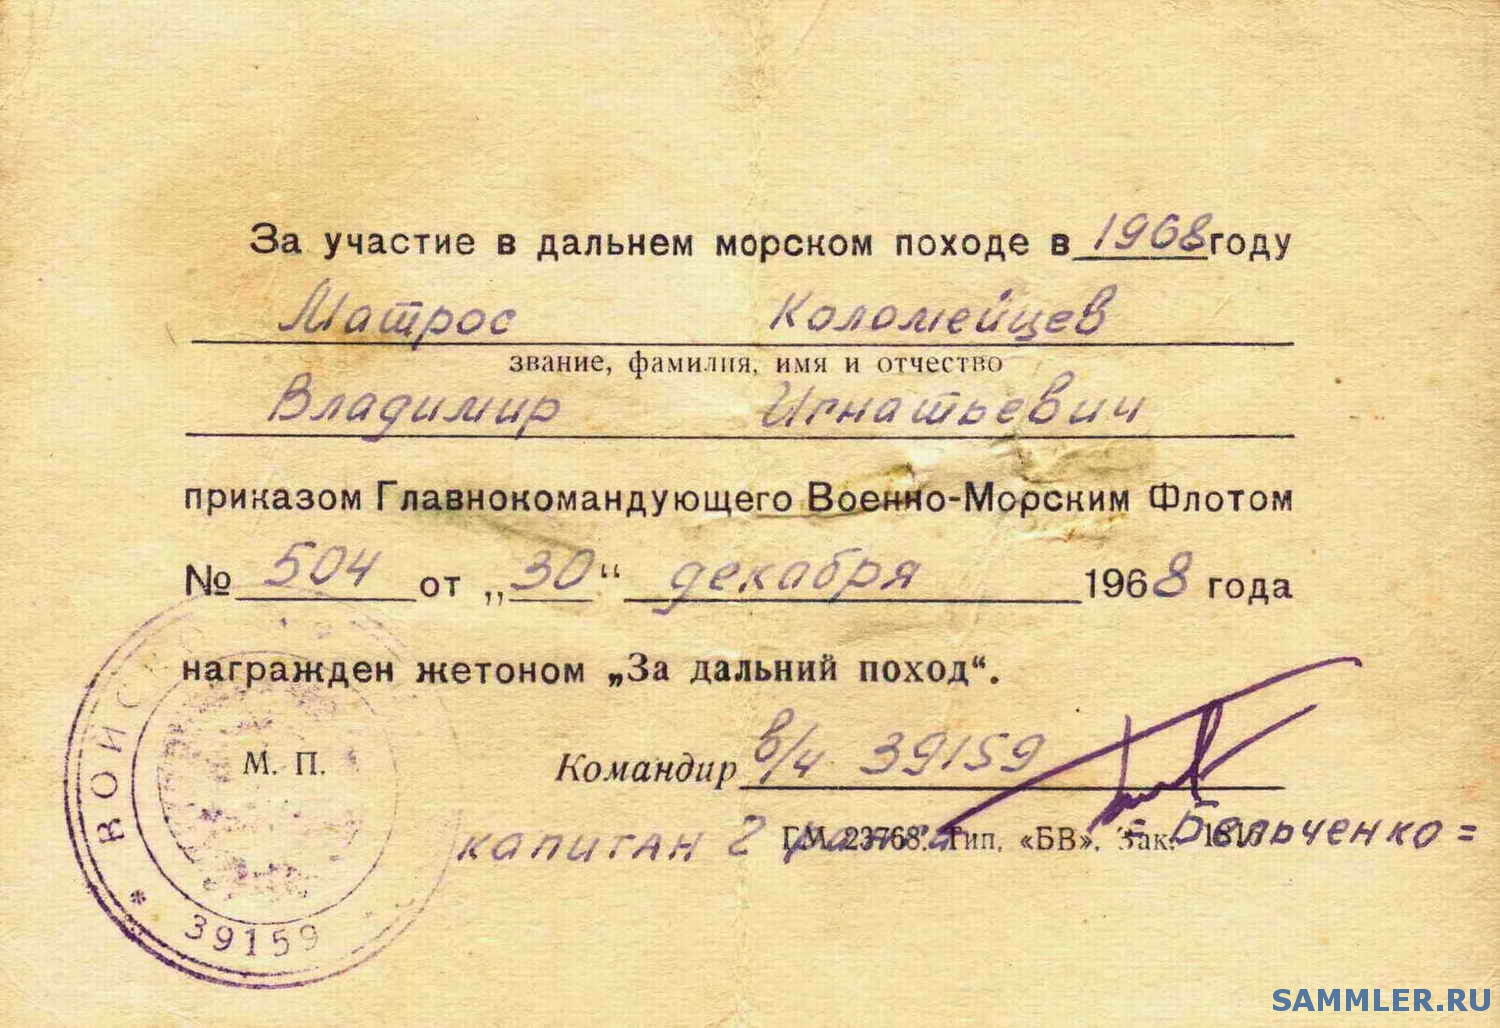 За участие в дальнем морском походе в 1968 году
Матрос Коломейцев
звание, фамилия, имя и отчество
Владимир Игнатьевич
приказом Главнокомандующего Военно-Морским Флотом
№ 504 от „30“ декабря 1968 года
награжден жетоном „За дальний поход“.
М. П.
Командир в/ч 39159
капитан 2 ранга = Бельченко =
ГМ. 23768. Тип. «БВ». Зак.
ВОЙСК
* 39159
SAMMLER.RU